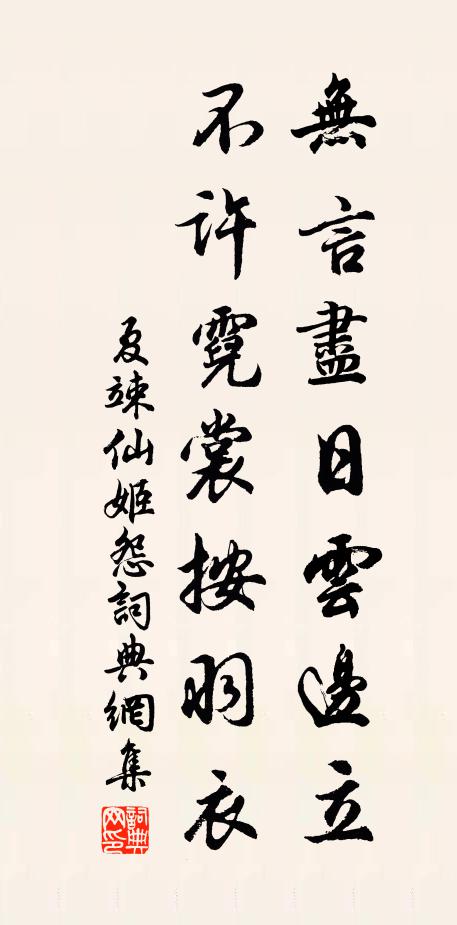 無言盡日雲邊立
不許霓裳按羽衣
夏竦仙姬怨詞典網集
詞典網印